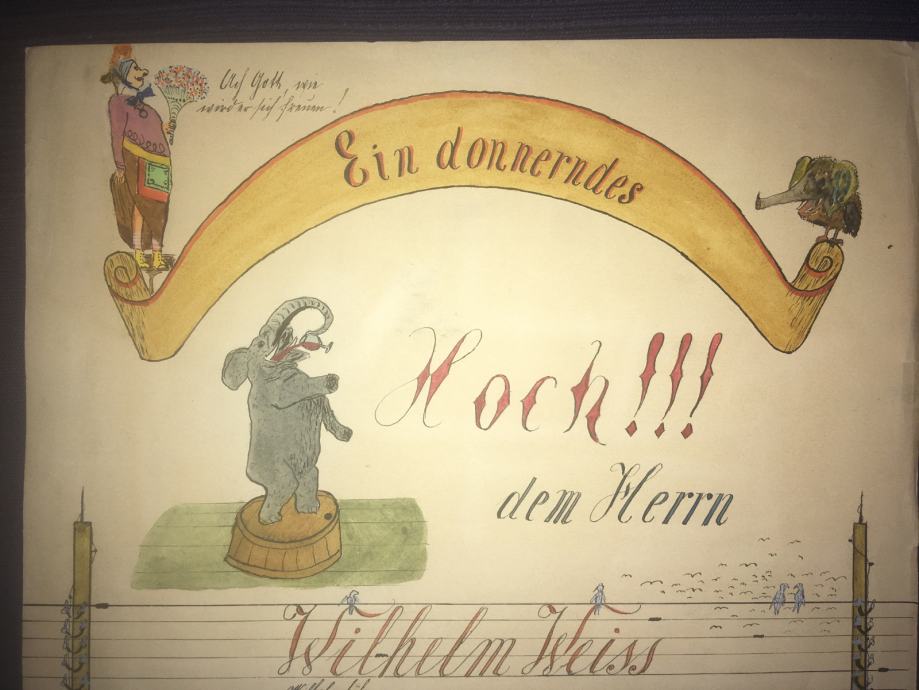 Ach Gott, wie
wird er sich freuen!
Ein donnerndes
Hoch!!!
dem Herrn
Wilhelm Weiss